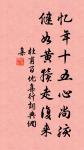 忆年十五心尚孩
健如黄犊走复来
杜甫百忧集行诗典阁
集